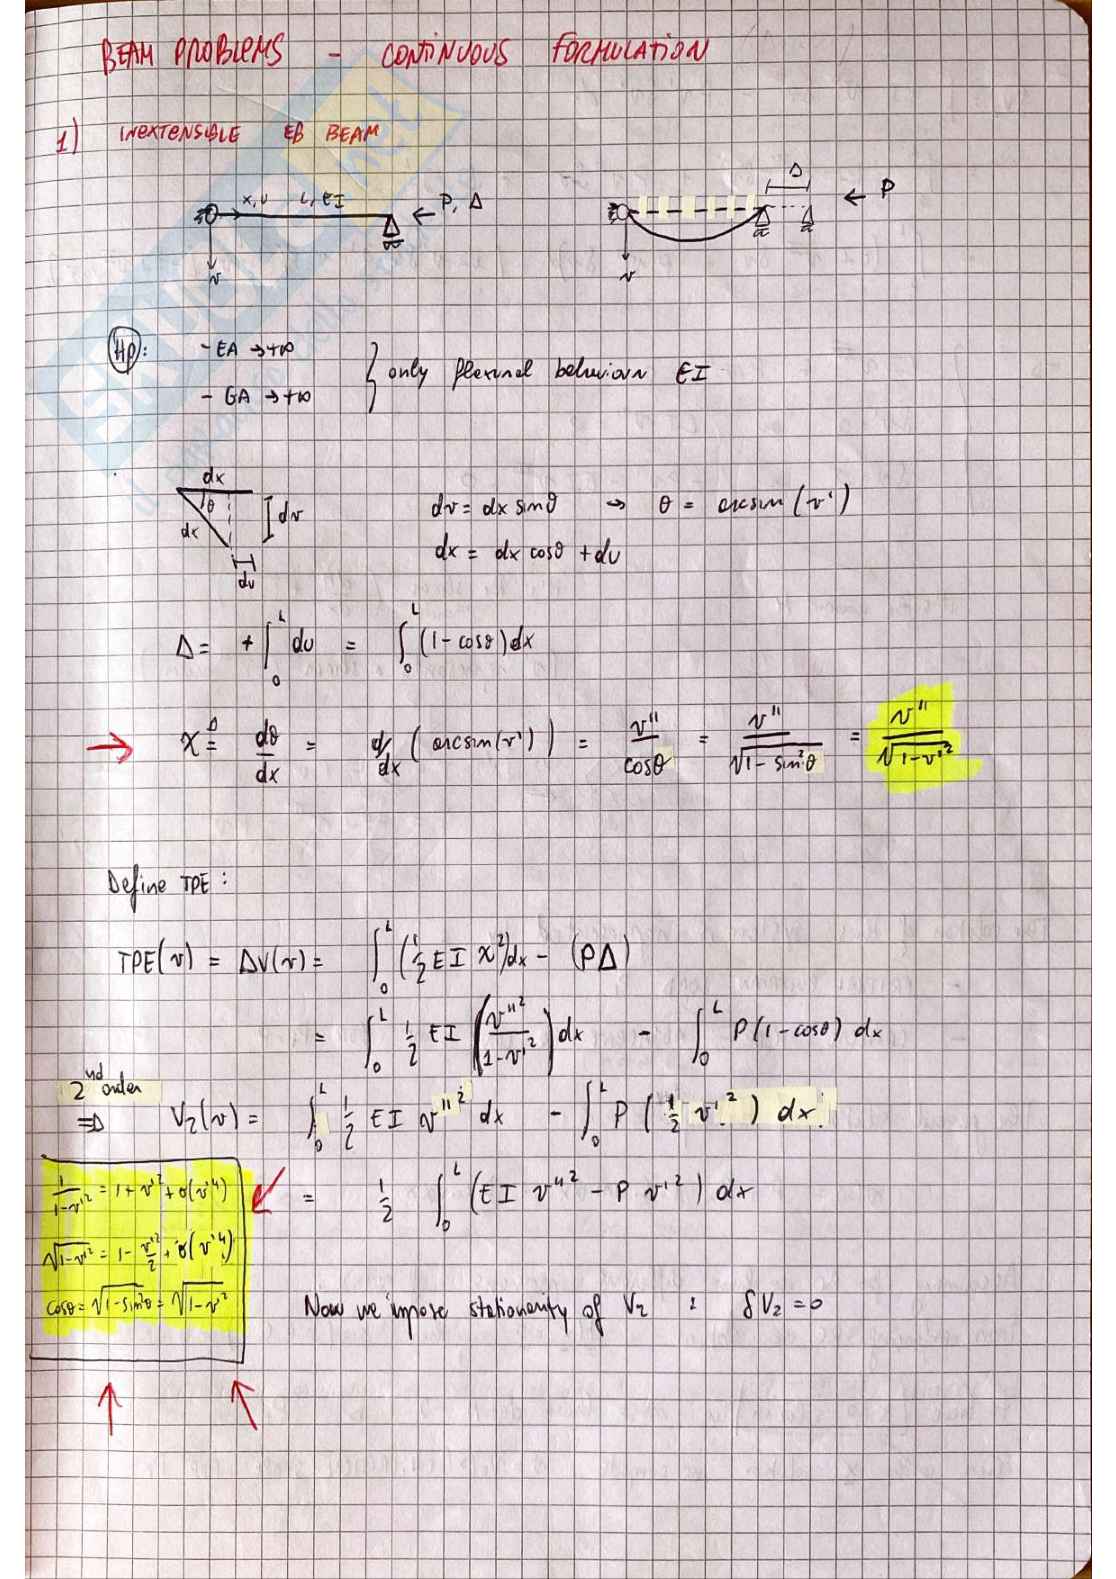 BEAM PROBLEMS - CONTINUOUS FORMULATION
1) INEXTENSIBLE EB BEAM
x, u L, EI P, Δ
v
Δ
P
v
Hp: - EA → +∞
- GA → +∞
only flexural behaviour EI
dx
θ
dx
dv
du
dv = dx sinθ → θ = arcsin(v')
dx = dx cosθ + du
Δ = + ∫₀ᴸ du = ∫₀ᴸ (1 - cosθ) dx
→ χ ≜ dθ/dx = d/dx (arcsin(v')) = v''/cosθ = v''/√(1 - sin²θ) = v''/√(1 - v'²)
Define TPE :
TPE(v) = ΔV(v) = ∫₀ᴸ (1/2 EI χ²) dx - (PΔ)
= ∫₀ᴸ 1/2 EI (v''²/(1 - v'²)) dx - ∫₀ᴸ P(1 - cosθ) dx
2nd order
⇒ V₂(v) = ∫₀ᴸ 1/2 EI v''² dx - ∫₀ᴸ P (1/2 v'²) dx
= 1/2 ∫₀ᴸ (EI v''² - P v'²) dx
1/(1 - v'²) = 1 + v'² + o(v'⁴)
√(1 - v'²) = 1 - v'²/2 + o(v'⁴)
cosθ = √(1 - sin²θ) = √(1 - v'²)
Now we impose stationarity of V₂ : δV₂ = 0